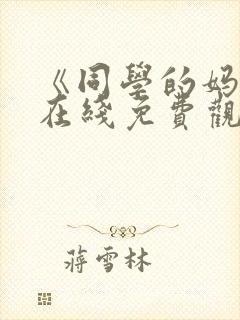 《同學的妈
在綫免費觀
蔣雪林